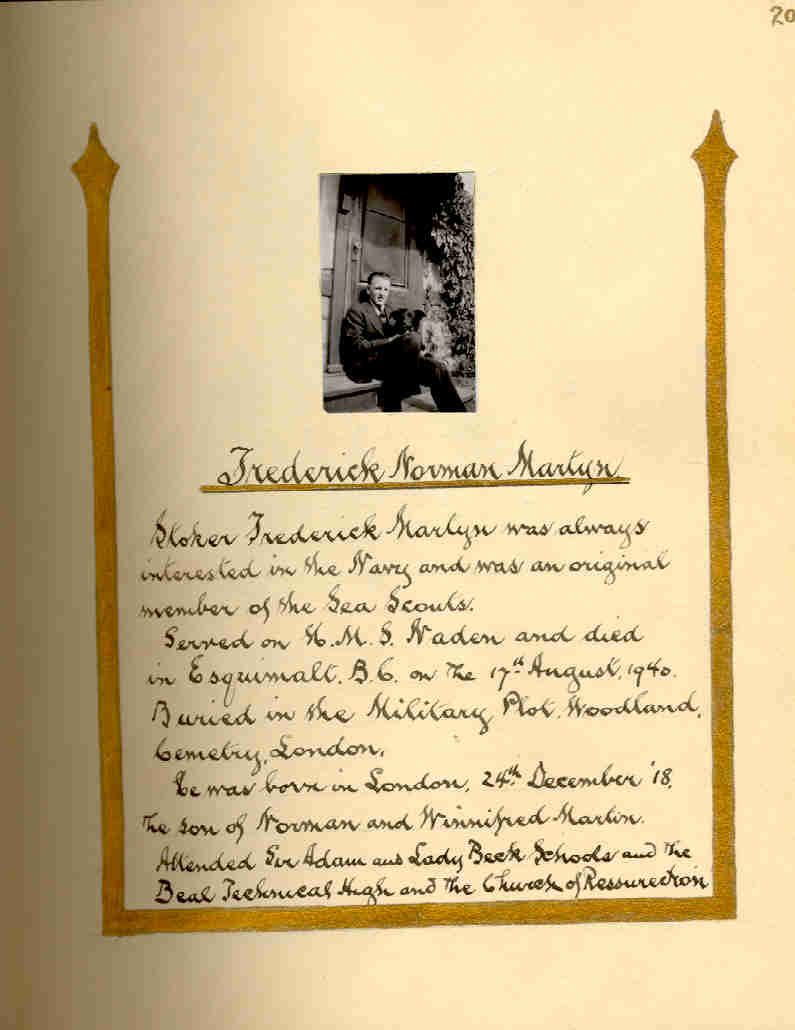 20
Frederick Norman Martyn
Stoker Frederick Martyn was always
interested in the Navy and was an original
member of the Sea Scouts.
Served on H.M.S. Naden and died
in Esquimalt. B.C. on The 17th August, 1940.
Buried in the Military Plot, Woodland,
Cemetry, London.
He was born in London, 24th December '18,
The son of Norman and Winnifred Martin.
Attended Sir Adam and Lady Beck Schools and The
Beal Technical High and The Church of Ressurection